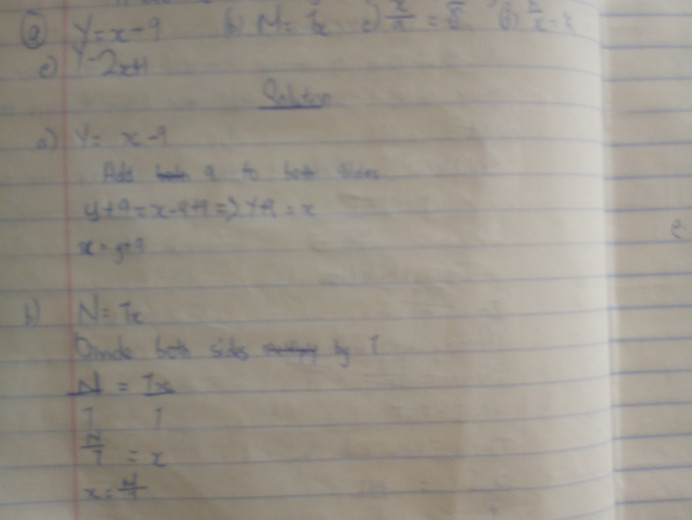 a) Y = x - 9 b) N = 7x c)
e) Y = 2x+1
Solution
a) Y = x - 9
Add 9 to both sides
y+9 = x-9+9 => Y+9 = x
x = y+9
b) N = 7x
Divide both sides by 7
N = 7x
7 7
N/7 = x
x = N/7